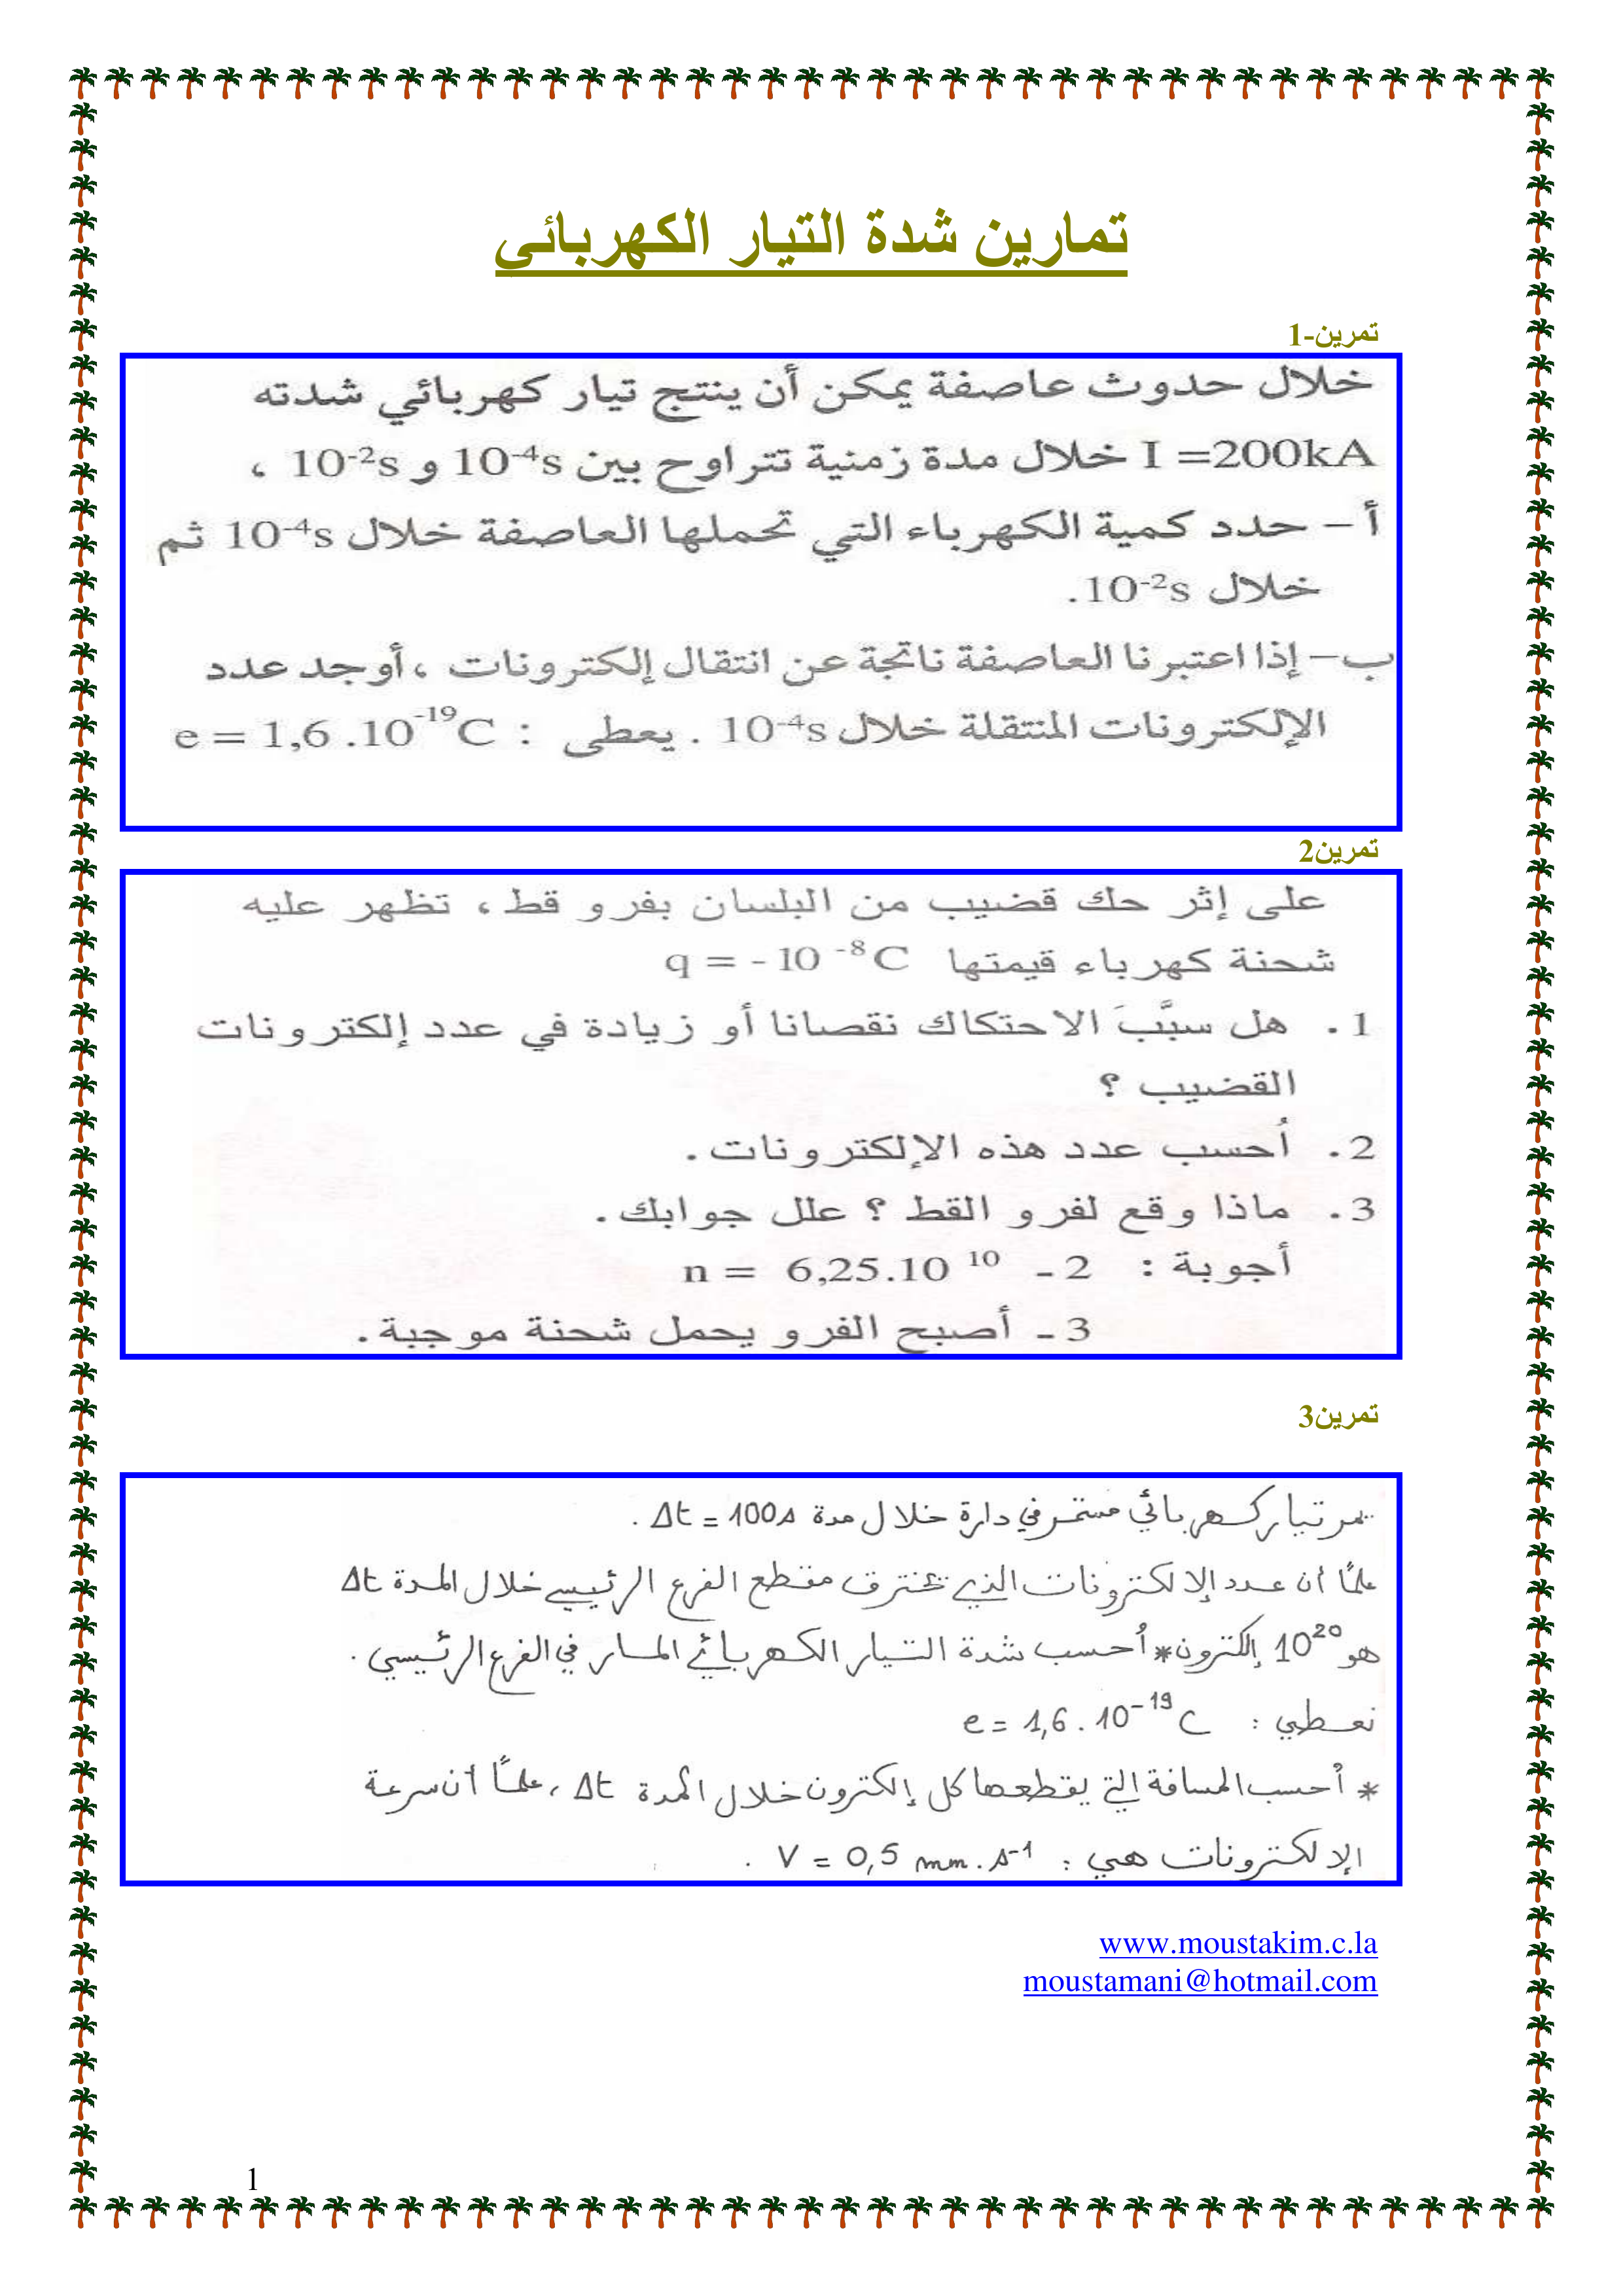 تمارين شدة التيار الكهربائي
تمرين-1
خلال حدوث عاصفة يمكن أن ينتج تيار كهربائي شدته
I =200kA خلال مدة زمنية تتراوح بين 10⁻⁴s و 10⁻²s ،
أ – حدد كمية الكهرباء التي تحملها العاصفة خلال 10⁻⁴s ثم
خلال 10⁻²s.
ب – إذا اعتبرنا العاصفة ناتجة عن انتقال إلكترونات ، أوجد عدد
الإلكترونات المنتقلة خلال 10⁻⁴s . يعطى : e = 1,6 .10⁻¹⁹C
تمرين2
على إثر حك قضيب من البلسان بفرو قط ، تظهر عليه
شحنة كهرباء قيمتها q = - 10 ⁻⁸C
1 . هل سبَّبَ الاحتكاك نقصانا أو زيادة في عدد إلكترونات
القضيب ؟
2 . أحسب عدد هذه الإلكترونات .
3 . ماذا وقع لفرو القط ؟ علل جوابك .
أجوبة : 2 - n = 6,25.10 ¹⁰
3 - أصبح الفرو يحمل شحنة موجبة .
تمرين3
يمر تيار كهربائي مستمر في دارة خلال مدة Δt = 100s .
علمًا أن عدد الإلكترونات الذي تخترق مقطع الفرع الرئيسي خلال المدة Δt
هو 10²⁰ إلكترون * أحسب شدة التيار الكهربائي المار في الفرع الرئيسي .
نعطي : e = 1,6 . 10⁻¹⁹ C
* أحسب المسافة التي يقطعها كل إلكترون خلال المدة Δt ، علمًا أن سرعة
الإلكترونات هي : V = 0,5 mm . s⁻¹ .
www.moustakim.c.la
moustamani@hotmail.com
1